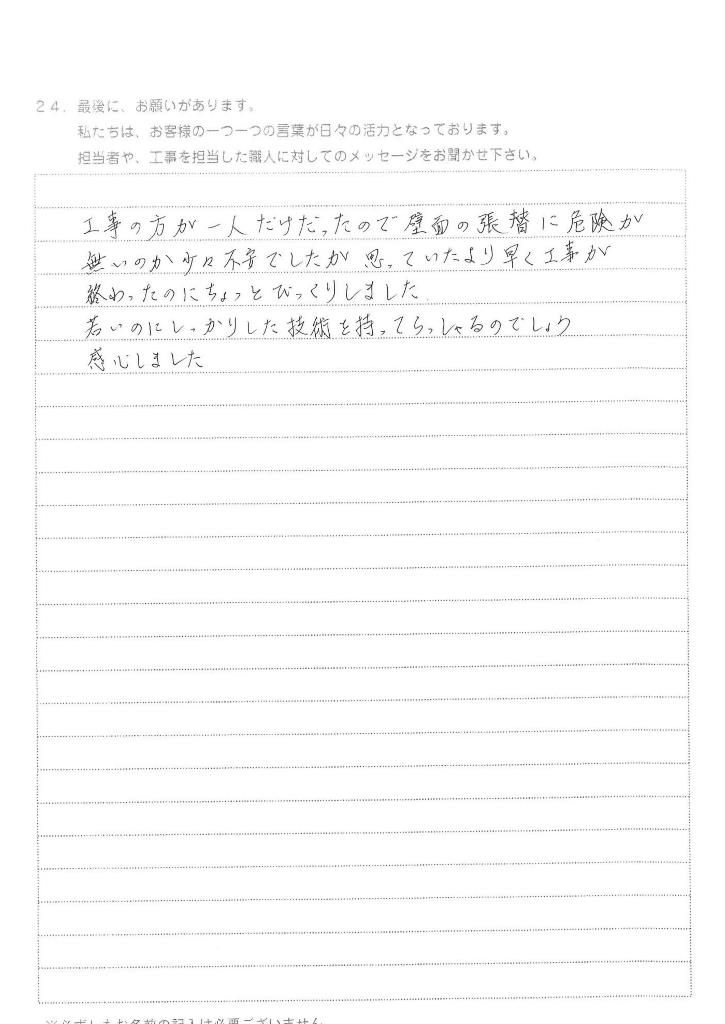 ２４．最後に、お願いがあります。
私たちは、お客様の一つ一つの言葉が日々の活力となっております。
担当者や、工事を担当した職人に対してのメッセージをお聞かせ下さい。
工事の方が一人だけだったので壁面の張替に危険が
無いのか少々不安でしたが思っていたより早く工事が
終わったのにちょっとびっくりしました
若いのにしっかりした技術を持ってらっしゃるのでしょう
感心しました
※必ずしもお名前の記入は必要ございません